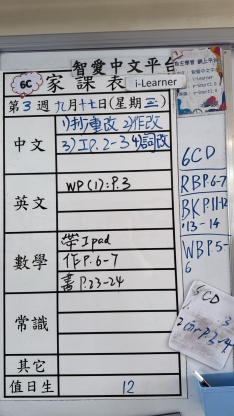 智愛中文平台
6C 家課表 i-Learner
第3週九月十七日(星期三)
中文
1)打/重改 2)作改
3)工P.2-3 4)詞改
英文
WP(1):P.3
數學
帶Ipad
作P.6-7
書P.23-24
常識
其它
值日生 12
i-Learner
6CD
RBP.6-7
BKP.11-12
13-14
WBP.5-
6
6CD